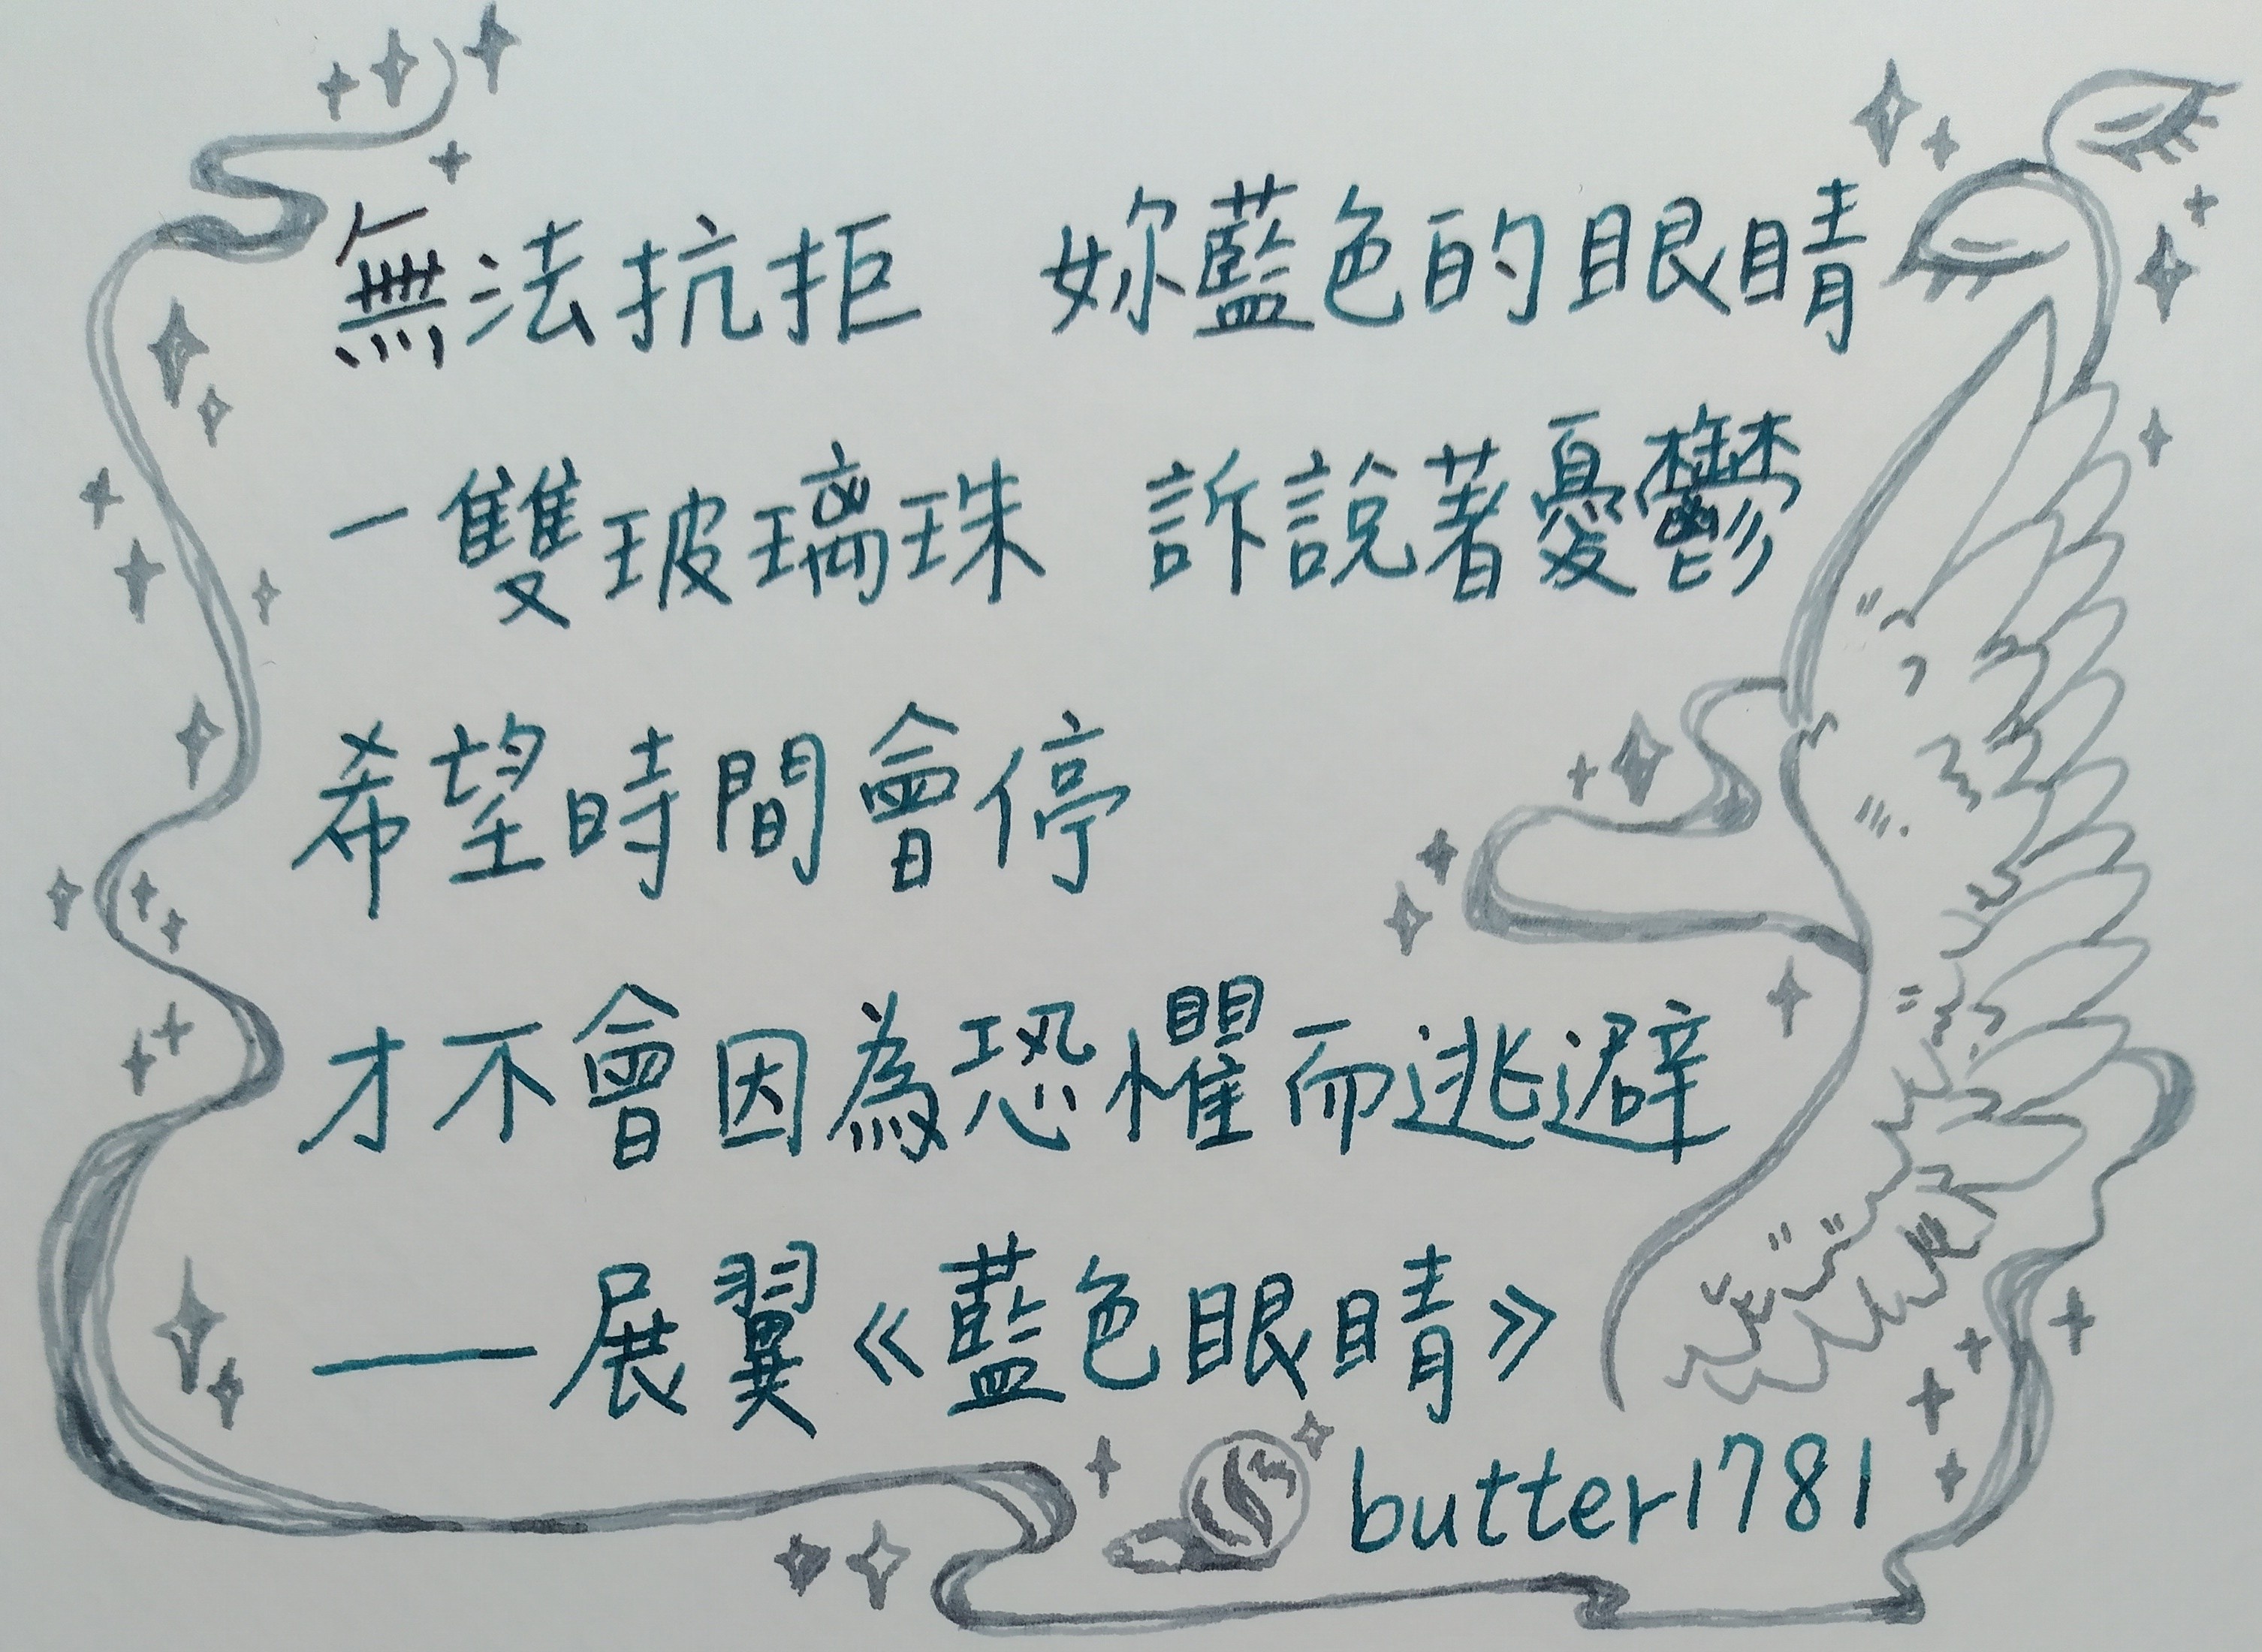 無法抗拒 妳藍色的眼睛
一雙玻璃珠 訴說著憂鬱
希望時間會停
才不會因為恐懼而逃避
——展翼《藍色眼睛》
butter1781